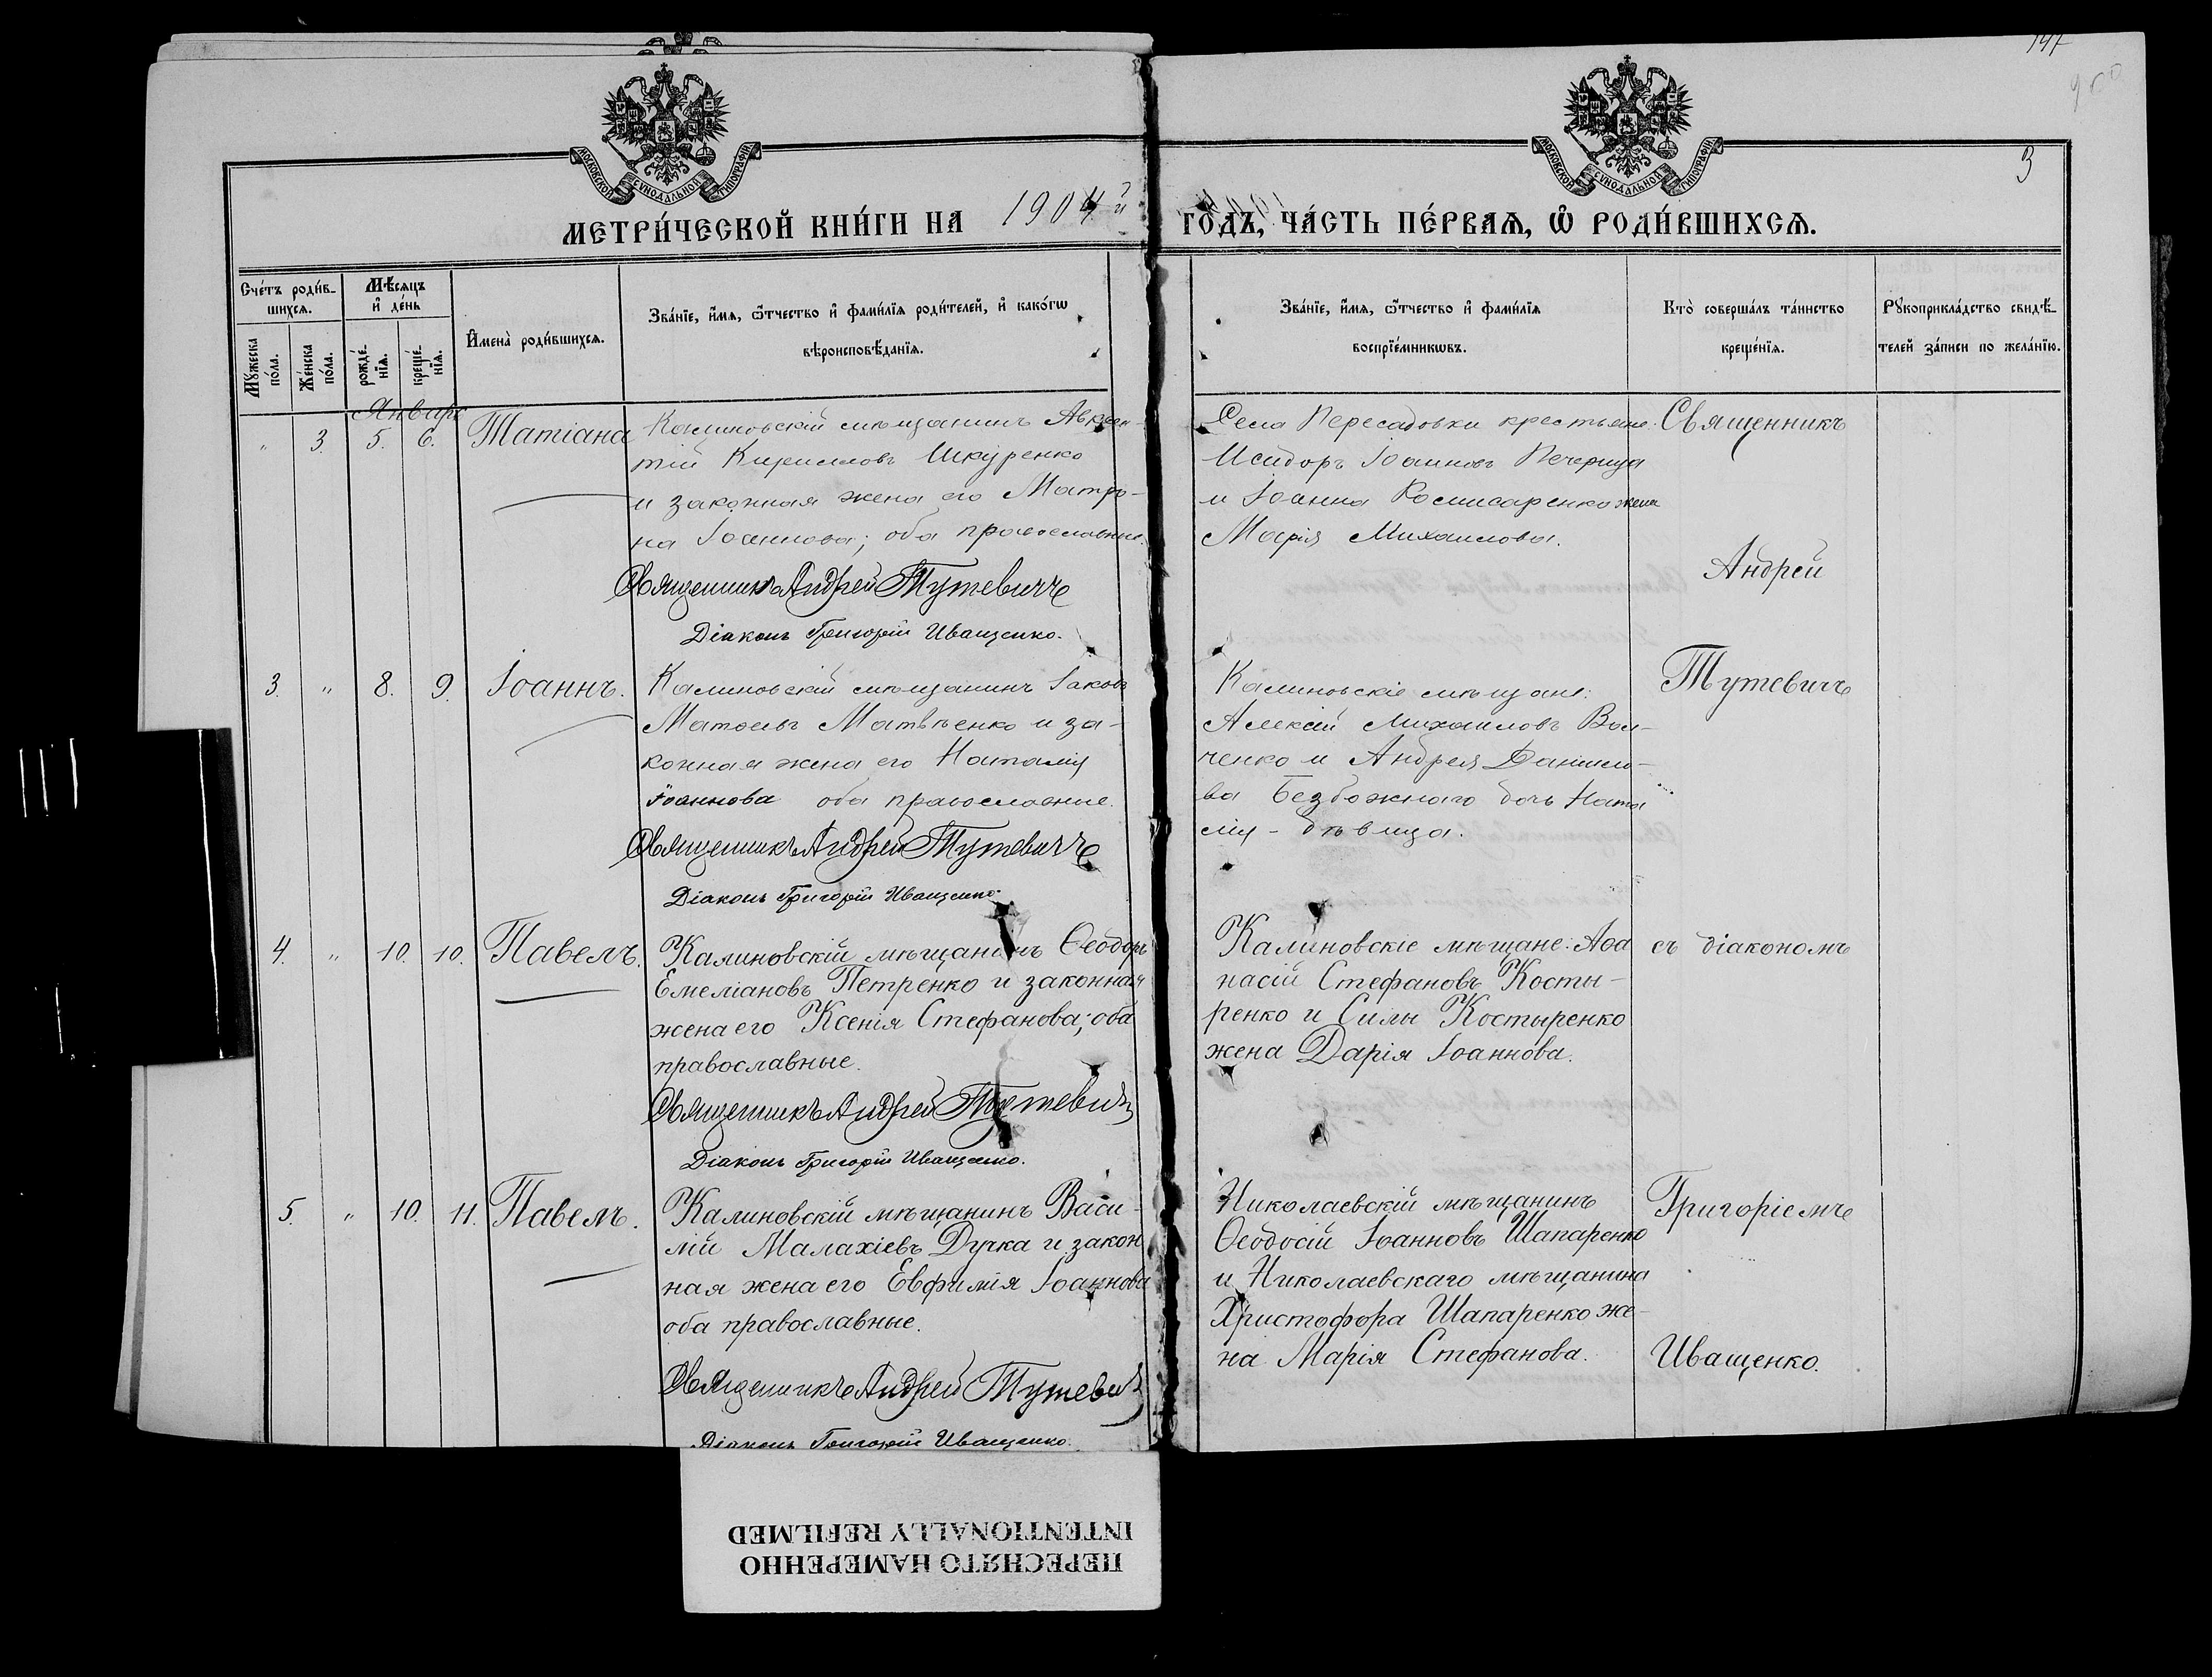 147
3
МОСКОВСКОЙ СѴНОДАЛЬНОЙ ТИПОГРАФІИ
МОСКОВСКОЙ СѴНОДАЛЬНОЙ ТИПОГРАФІИ
МЕТРИ́ЧЕСКОЙ КНИ́ГИ НА 1904й ГОДЪ, ЧА́СТЬ ПЕ́РВАѦ, Ѡ РОДИ́ВШИХСѦ.
Сче́тъ роди́в-
шихсѧ.
Мꙋ́жеска по́ла.
Же́нска по́ла.
Мѣ́сяцъ
и҆ де́нь
рожде́-
нїѧ.
креще́-
нїѧ.
И҆мена̀ роди́вшихсѧ.
Зва́нїе, и҆́мѧ, ѻ҆́тчество и҆ фами́лїѧ роди́телей, и҆ како́гѡ
вѣроисповѣ́данїѧ.
Зва́нїе, и҆́мѧ, ѻ҆́тчество и҆ фами́лїѧ
воспрїе́мникѡвъ.
Кто̀ соверша́лъ та́инство
креще́нїѧ.
Рꙋкоприкла́дство свидѣ́-
телей за́писи по жела́нїю.
Январь
" 3. 5. 6. Татіана
Калиновскій мѣщанинъ Авксен-
тій Кирилловъ Шкуренко
и законная жена его Матро-
на Іоаннова; оба православные.
Священникъ Андрей Тутевичъ
Діаконъ Григорій Иващенко.
Села Пересадовки крестьяне:
Исидоръ Іоанновъ Печерица
и Іоанна Комисаренко жена
Марія Михаилова.
Священникъ
Андрей
3. " 8. 9. Іоаннъ.
Калиновскій мѣщанинъ Іаковъ
Матѳеевъ Матвѣенко и за-
конная жена его Наталія
Іоаннова оба православные.
Священникъ Андрей Тутевичъ
Діаконъ Григорій Иващенко.
Калиновскіе мѣщане:
Алексій Михаиловъ Вол-
ченко и Андрея Данило-
ва Безбожнаго дочь Ната
лія - дѣвица.
Тутевичъ
4. " 10. 10. Павелъ.
Калиновскій мѣщанинъ Ѳеодоръ
Емеліановъ Петренко и законная
жена его Ксенія Стефанова; оба
православные.
Священникъ Андрей Тутевичъ
Діаконъ Григорій Иващенко.
Калиновскіе мѣщане: Аѳа
насій Стефановъ Косты-
ренко и Силы Костыренко
жена Дарія Іоаннова.
съ діакономъ
5. " 10. 11. Павелъ.
Калиновскій мѣщанинъ Васи-
лій Малахіевъ Дучка и закон
ная жена его Евфимія Іоаннова
оба православные.
Священникъ Андрей Тутевичъ
Діаконъ Григорій Иващенко.
Николаевскій мѣщанинъ
Ѳеодосій Іоанновъ Шапаренко
и Николаевскаго мѣщанина
Христофора Шапаренко же-
на Марія Стефанова.
Григоріемъ
Иващенко.
ПЕРЕСНЯТО НАМЕРЕННО
INTENTIONALLY REFILMED